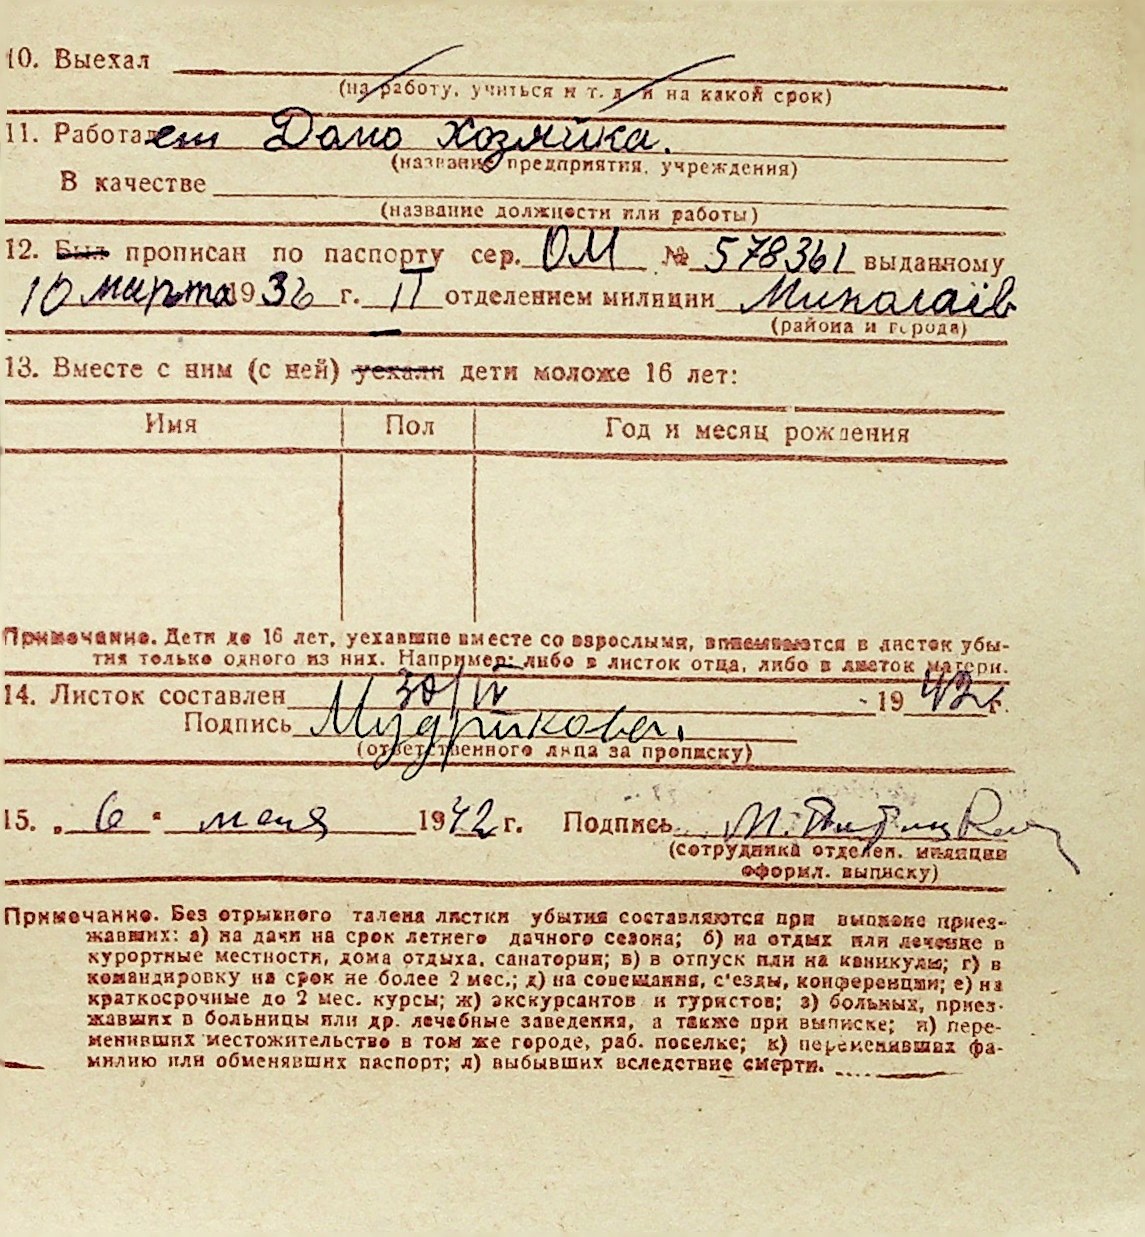 10. Выехал
(на работу, учиться и т. д. и на какой срок)
11. Работает Домо хозяйка.
(название предприятия, учреждения)
В качестве
(название должности или работы)
12. Был прописан по паспорту сер. ОМ № 578361 выданному
10 марта 1936 г. II отделением милиции Миколаїв
(района и города)
13. Вместе с ним (с ней) уехали дети моложе 16 лет:
Имя Пол Год и месяц рождения
Примечание. Дети до 16 лет, уехавшие вместе со взрослыми, вписываются в листок убы-
тия только одного из них. Например: либо в листок отца, либо в листок матери.
14. Листок составлен 30/IV 1942 г.
Подпись
(ответственного лица за прописку)
15. „ 6 " мая 1942 г. Подпись
(сотрудника отделен. милиции
оформл. выписку)
Примечание. Без отрывного талона листки убытия составляются при выписке приез-
жавших: а) на дачи на срок летнего дачного сезона; б) на отдых или лечение в
курортные местности, дома отдыха, санатории; в) в отпуск или на каникулы; г) в
командировку на срок не более 2 мес.; д) на совещания, с'езды, конференции; е) на
краткосрочные до 2 мес. курсы; ж) экскурсантов и туристов; з) больных, приез-
жавших в больницы или др. лечебные заведения, а также при выписке; и) пере-
менивших местожительство в том же городе, раб. поселке; к) переменивших фа-
милию или обменявших паспорт; л) выбывших вследствие смерти.